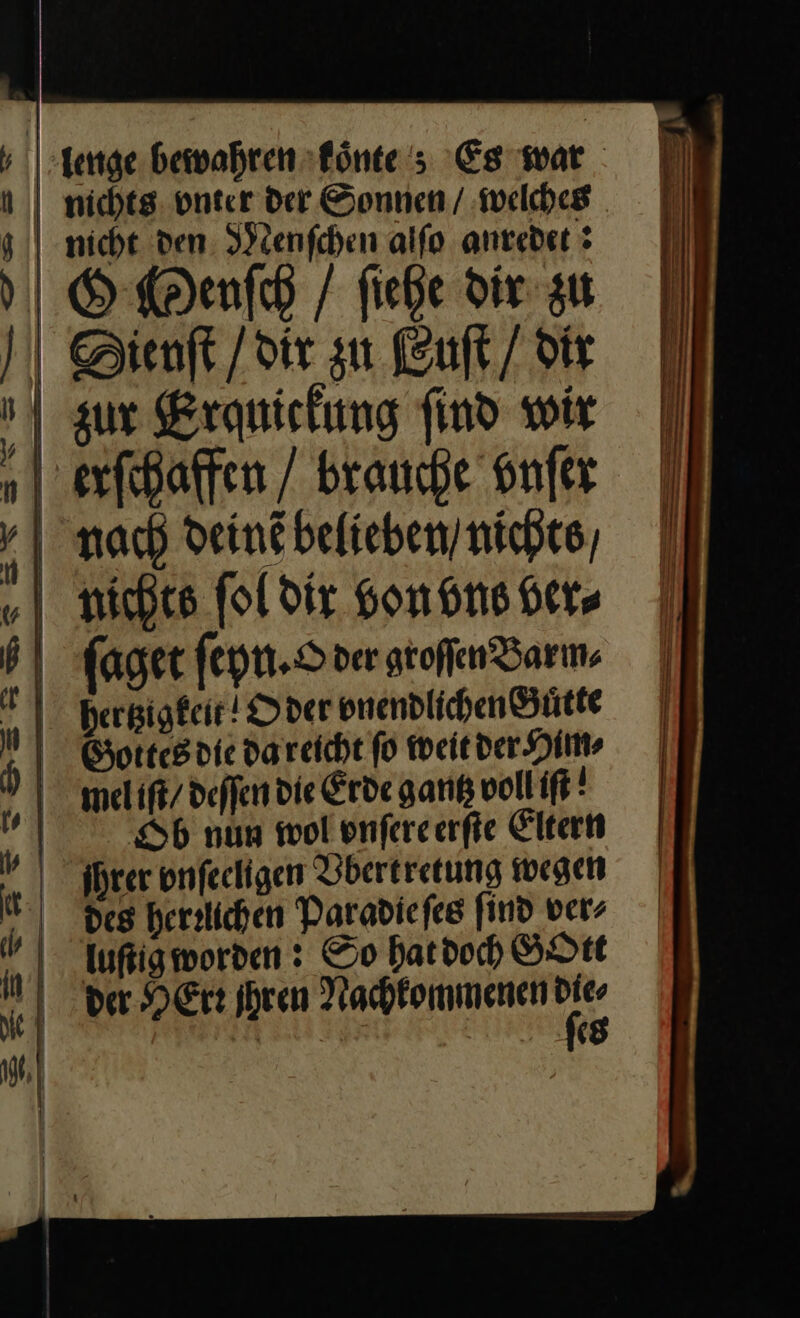 lenge bewahren koͤnte; Es war
nichts vnter der Sonnen / welches
nicht den Menſchen alſo anredet:
O Menſch / ſiehe dir zu
Dienſt / dir zu Luſt / dir
zur Erquickung ſind wir
erſchaffen / brauche vnſer
nach deinẽ belieben / nichts /
nichts ſol dir von vns ver⸗
ſaget ſeyn. O der groſſen Barm⸗
hertzigkeit! O der vnendlichen Guͤtte
Gottes die da reicht ſo weit der Him⸗
mel iſt / deſſen die Erde gantz voll iſt!
Ob nun wol vnſere erſte Eltern
jhrer vnſeeligen Vbertretung wegen
des herꝛlichen Paradieſes ſind ver⸗
luſtig worden: So hat doch GOtt
der HErꝛ jhren Nachkommenen die⸗
ſes